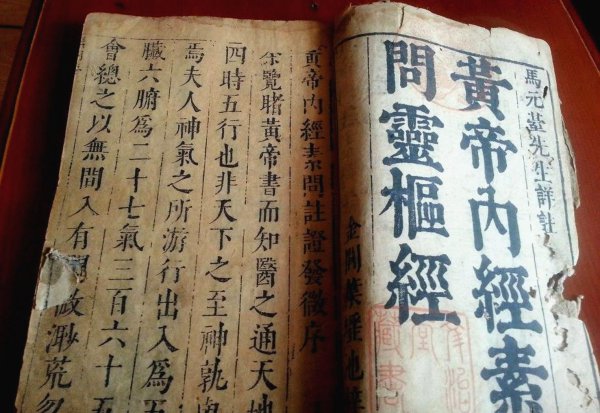 馬元臺先生詳註
黃帝內經素
問靈樞經
黃帝內經素問註證發微序
余覽睹黃帝書而知醫之通天地
四時五行也非天下之至神孰
焉夫人神氣之所游行出入為五
臟六腑為二十七氣三百六十五
會總之以無間入有間故渺荒忽